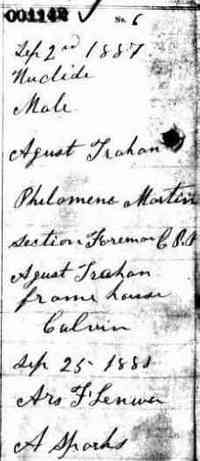 001142 No. 6
Sep 2nd 1887
Nuclide
Male
Agust Trahan
Philomene Martin
Section Foreman C P R
Agust Trahan
frame house
Calvin
Sep 25 1881
A Sparks